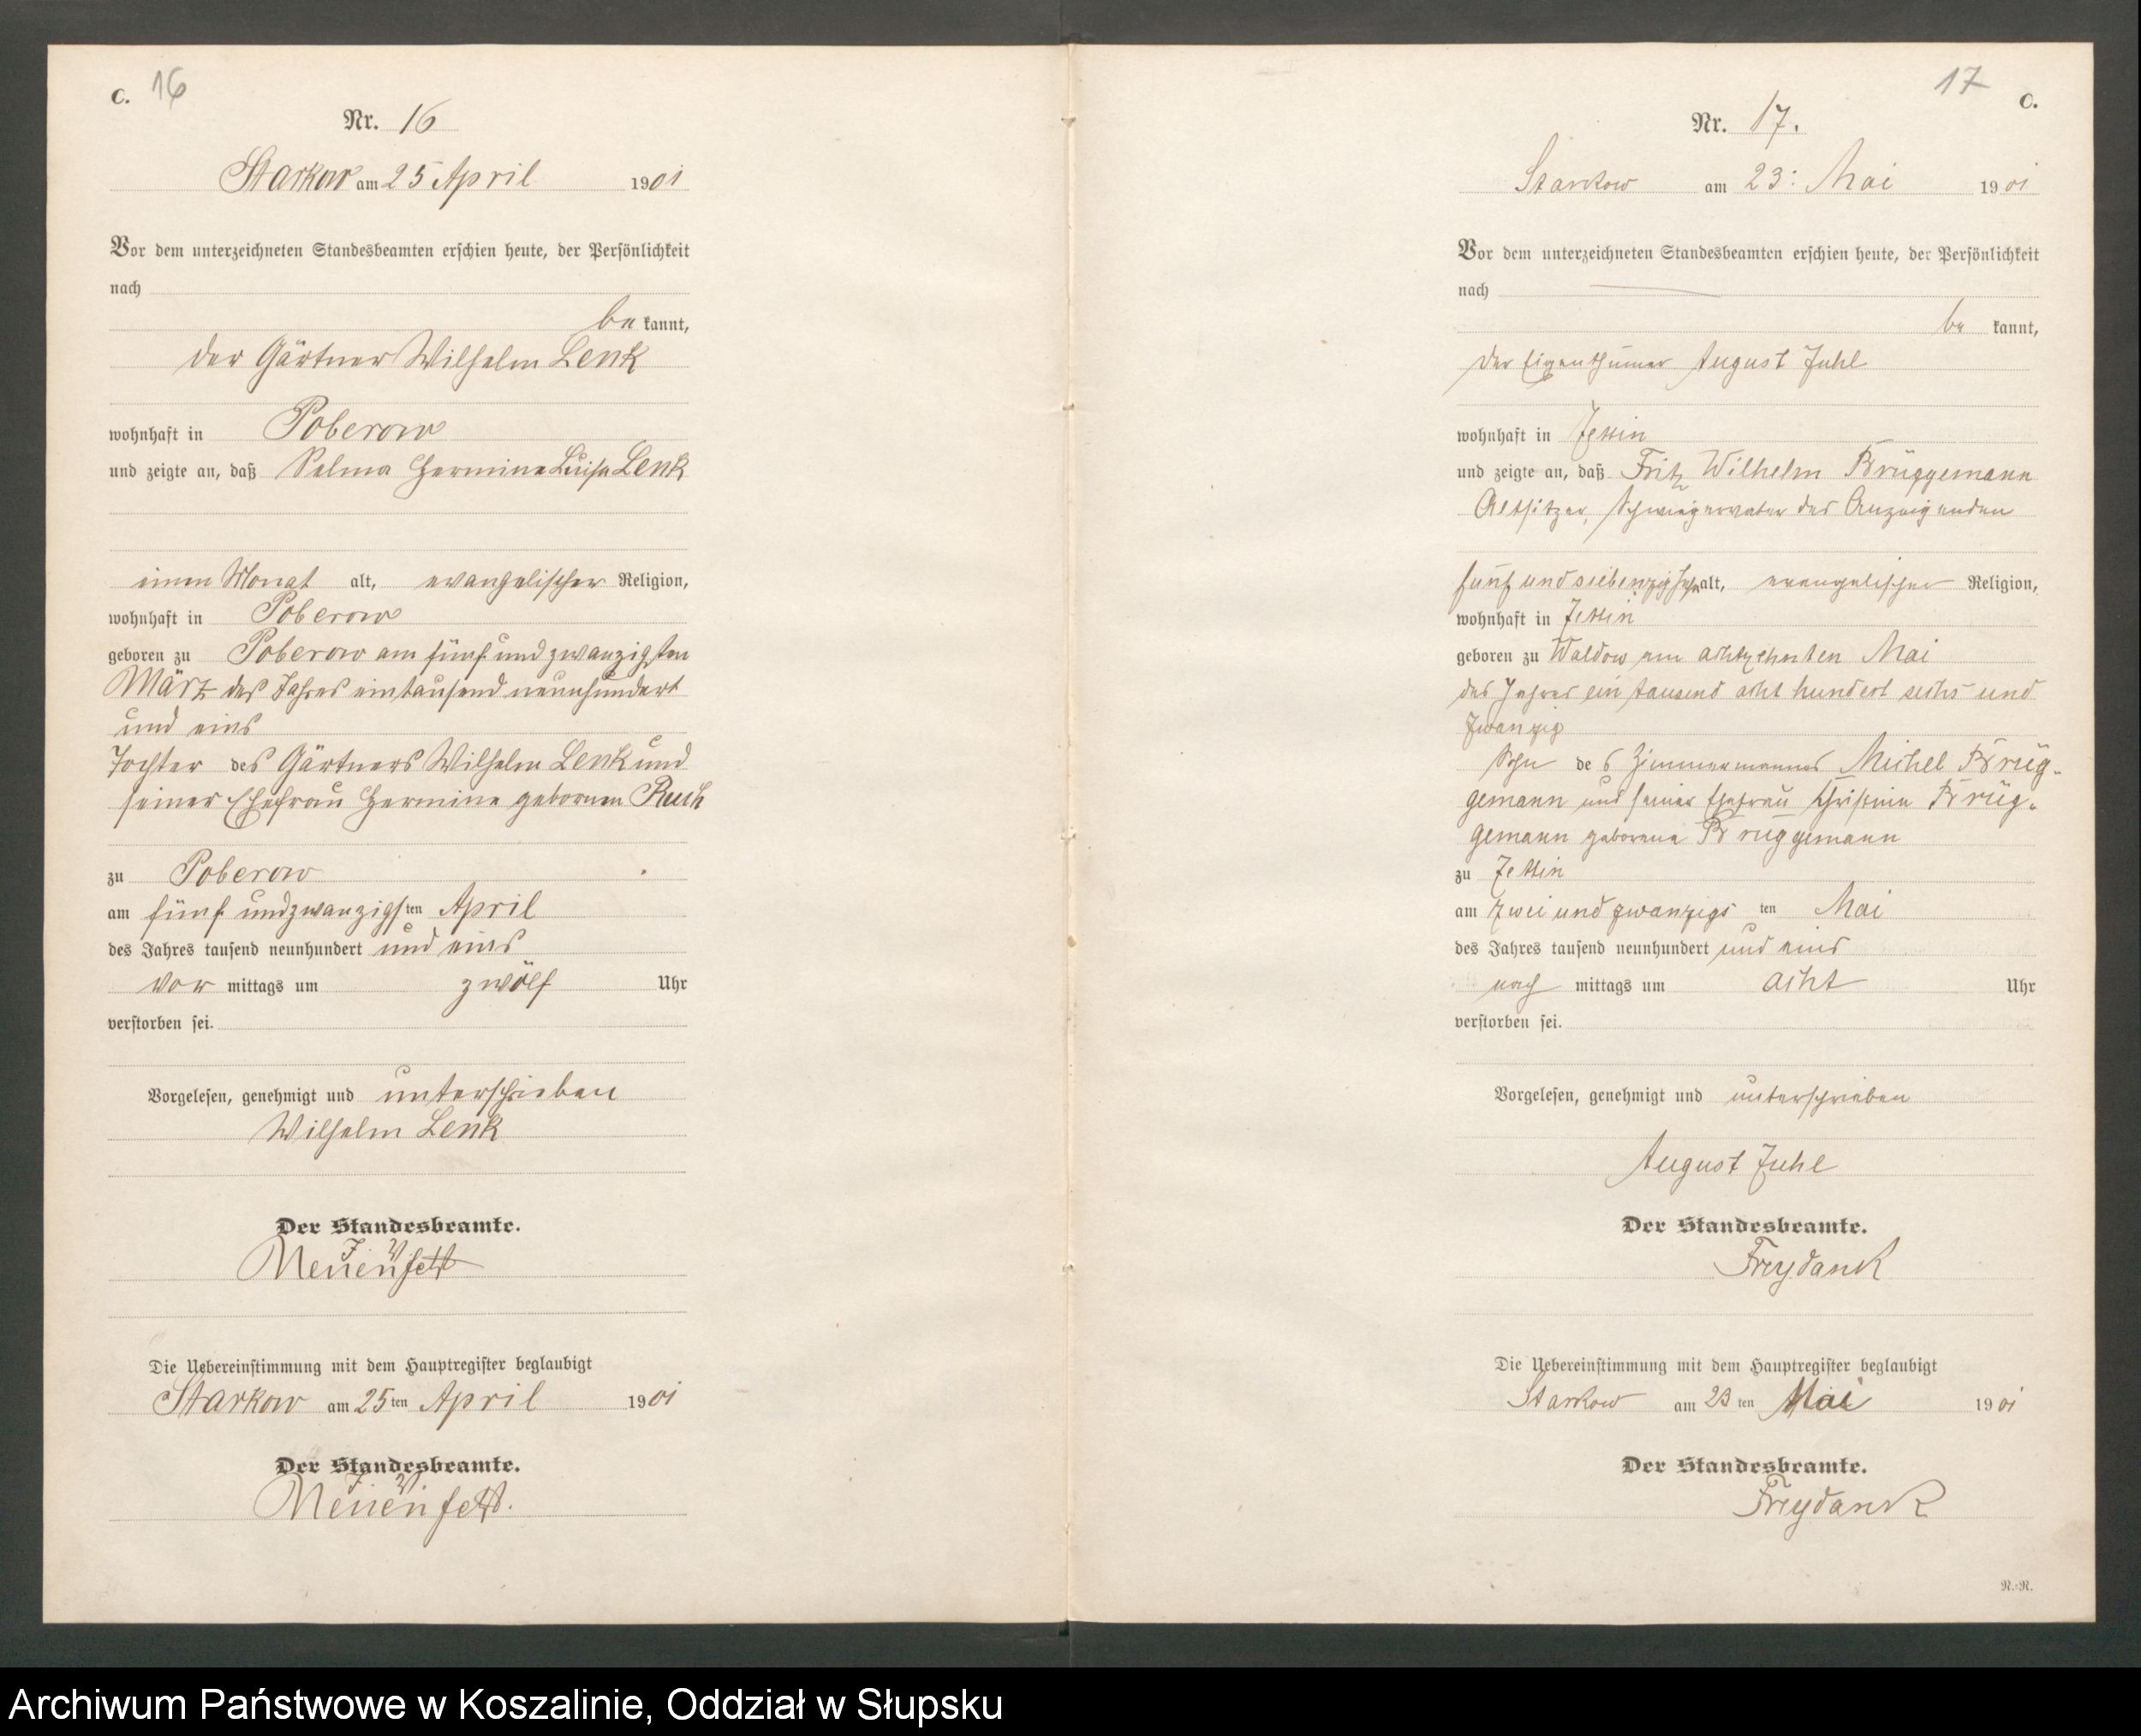 C. 16
Nr. 16
Starkow am 25 April 1901
Vor dem unterzeichneten Standesbeamten erschien heute, der Persönlichkeit
nach
be kannt,
der Gärtner Wilhelm Lenk
wohnhaft in Poberow
und zeigte an, daß Selma Hermine Luise Lenk
einen Monat alt, evangelischer Religion,
wohnhaft in Poberow
geboren zu Poberow am fünf und zwanzigsten
März des Jahres eintausend neunhundert
und eins
Tochter des Gärtners Wilhelm Lenk und
seiner Ehefrau Hermine gebornen
zu Poberow
am fünf und zwanzigsten April
des Jahres tausend neunhundert und eins
Vor mittags um zwölf Uhr
verstorben sei.
Vorgelesen, genehmigt und unterschrieben
Wilhelm Lenk
Der Standesbeamte.
J. V.
Die Uebereinstimmung mit dem Hauptregister beglaubigt
Starkow am 25ten April 1901
Der Standesbeamte.
J. V.
17 C.
Nr. 17.
Starkow am 23: Mai 1901
Vor dem unterzeichneten Standesbeamten erschien heute, der Persönlichkeit
nach
be kannt,
der Eigenthümer August Juhl
wohnhaft in Zettin
und zeigte an, daß Fritz Wilhelm Brüggemann
Altsitzer, Schwiegervater des Anzeigenden
fünf und siebenzig Jahr alt, evangelischer Religion,
wohnhaft in Zettin
geboren zu Waldow am achtzehnten Mai
des Jahres ein tausend acht hundert sechs und
zwanzig
Sohn des Zimmermannes Michel Brüg-
gemann und seiner Ehefrau Christine Brüg-
gemann geborene Brüggemann
zu Zettin
am zwei und zwanzigsten Mai
des Jahres tausend neunhundert und eins
nach mittags um acht Uhr
verstorben sei.
Vorgelesen, genehmigt und unterschrieben
August Juhl
Der Standesbeamte.
Freydank
Die Uebereinstimmung mit dem Hauptregister beglaubigt
Starkow am 23ten Mai 1901
Der Standesbeamte.
Freydank
N.-N.
Archiwum Państwowe w Koszalinie, Oddział w Słupsku